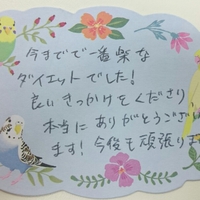 今までで一番楽な
ダイエットでした!
良いきっかけをくださり
本当にありがとうござい
ます!今後も頑張りま